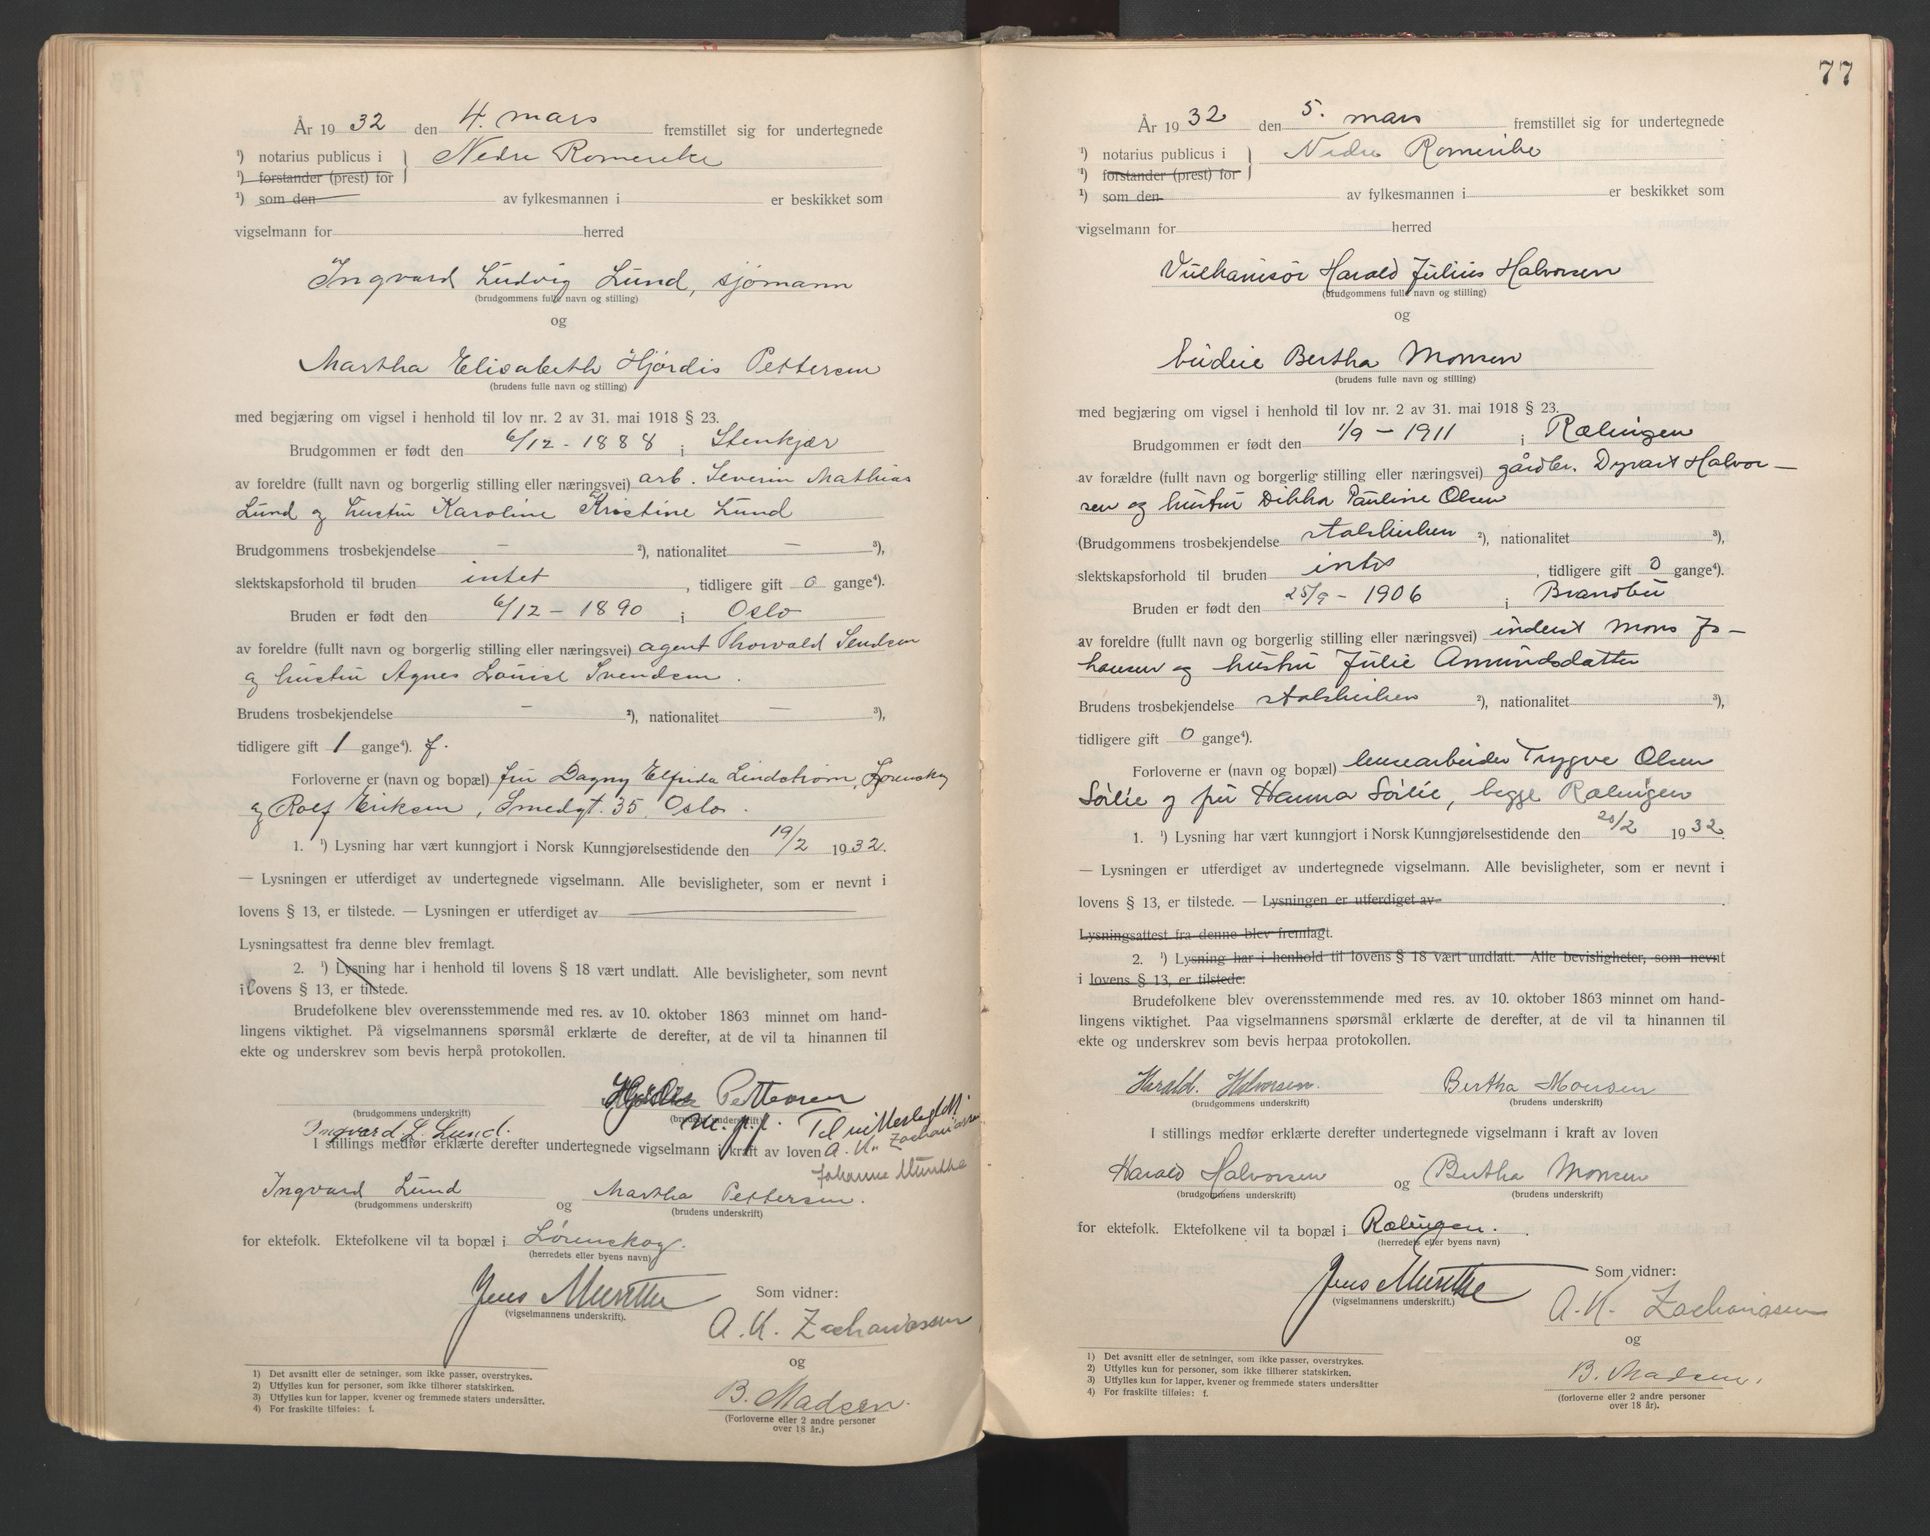 År 1932 den 4. mars fremstillet sig for undertegnede
¹) notarius publicus i } Nedre Romerike
¹) forstander (prest) for
¹) som den av fylkesmannen i er beskikket som
vigselmann for herred
Ingvard Ludvig Lund, sjømann
(brudgommens fulle navn og stilling)
og
Martha Elisabeth Hjørdis Pettersen
(brudens fulle navn og stilling)
med begjæring om vigsel i henhold til lov nr. 2 av 31. mai 1918 § 23.
Brudgommen er født den 6/12 - 1888 i Stenkjær
av foreldre (fullt navn og borgerlig stilling eller næringsvei) arb. Severin Mathias
Lund og hustru Karoline Kristine Lund
Brudgommens trosbekjendelse – ²), nationalitet – ³),
slektskapsforhold til bruden intet, tidligere gift 0 gange⁴).
Bruden er født den 6/12 - 1890 i Oslo
av foreldre (fullt navn og borgerlig stilling eller næringsvei) agent Thorvald Sendsen
og hustru Agnes Louise Svendsen.
Brudens trosbekjendelse – ²), nationalitet – ³),
tidligere gift 1 gange⁴). f.
Forloverne er (navn og bopæl) fru Dagny Elfrida Lindstrøm, Lørenskog
og Rolf Eriksen, Smedgt. 35, Oslo.
1. ¹) Lysning har vært kunngjort i Norsk Kunngjørelsestidende den 19/2 1932.
— Lysningen er utferdiget av undertegnede vigselmann. Alle bevisligheter, som er nevnt i
lovens § 13, er tilstede. — Lysningen er utferdiget av
Lysningsattest fra denne blev fremlagt.
2. ¹) Lysning har i henhold til lovens § 18 vært undlatt. Alle bevisligheter, som nevnt
i lovens § 13, er tilstede.
Brudefolkene blev overensstemmende med res. av 10. oktober 1863 minnet om hand-
lingens viktighet. På vigselmannens spørsmål erklærte de derefter, at de vil ta hinannen til
ekte og underskrev som bevis herpå protokollen.
Hjørdis Pettersen
(brudgommens underskrift) (brudens underskrift)
m. p. p. Til vitterlighet
Ingvard. L. Lund.
I stillings medfør erklærte derefter undertegnede vigselmann i kraft av loven A. K. Zachariassen
Johanne Munthe
Ingvard Lund og Martha Pettersen.
(brudgommens underskrift) (brudens underskrift)
for ektefolk. Ektefolkene vil ta bopæl i Lørenskog.
(herredets eller byens navn)
Jens Munthe Som vidner:
(vigselmannens underskrift).
A. K. Zachariassen
og
B. Madsen.
(Forloverne eller 2 andre personer
over 18 år.)
1) Det avsnitt eller de setninger, som ikke passer, overstrykes.
2) Utfylles kun for personer, som ikke tilhører statskirken.
3) Utfylles kun for lapper, kvener og fremmede staters undersåtter.
4) For fraskilte tilføies: f.
77
År 1932 den 5. mars fremstillet sig for undertegnede
¹) notarius publicus i } Nedre Romerike
¹) forstander (prest) for
¹) som den av fylkesmannen i er beskikket som
vigselmann for herred
Vulkanisør Harald Julius Halvorsen
(brudgommens fulle navn og stilling)
og
budeie Bertha Monsen
(brudens fulle navn og stilling)
med begjæring om vigsel i henhold til lov nr. 2 av 31. mai 1918 § 23.
Brudgommen er født den 1/9 - 1911 i Rælingen
av foreldre (fullt navn og borgerlig stilling eller næringsvei) gårdbr. Dyvart Halvor-
sen og hustru Dikka Pauline Olsen
(Brudgommens trosbekjendelse statskirken ²), nationalitet ³),
slektskapsforhold til bruden intet, tidligere gift 0 gange⁴).
Bruden er født den 25/9 - 1906 i Brandbu
av foreldre (fullt navn og borgerlig stilling eller næringsvei) inderst Mons Jo-
hansen og hustru Julie Amundsdatter
Brudens trosbekjendelse statskirken ²), nationalitet ³),
tidligere gift 0 gange⁴).
Forloverne er (navn og bopæl) lensearbeider Trygve Olsen
Sørlie og fru Hanna Sørlie, begge Rælingen
1. ¹) Lysning har vært kunngjort i Norsk Kunngjørelsestidende den 20/2 1932.
— Lysningen er utferdiget av undertegnede vigselmann. Alle bevisligheter, som er nevnt i
lovens § 13, er tilstede. — Lysningen er utferdiget av
Lysningsattest fra denne blev fremlagt.
2. ¹) Lysning har i henhold til lovens § 18 vært undlatt. Alle bevisligheter, som nevnt
i lovens § 13, er tilstede.
Brudefolkene blev overensstemmende med res. av 10. oktober 1863 minnet om hand-
lingens viktighet. Paa vigselmannens spørsmål erklærte de derefter, at de vil ta hinannen til
ekte og underskrev som bevis herpaa protokollen.
Harald. Halvorsen. Bertha Monsen
(brudgommens underskrift) (brudens underskrift)
I stillings medfør erklærte derefter undertegnede vigselmann i kraft av loven
Harald Halvorsen og Bertha Monsen
(brudgommens underskrift) (brudens underskrift)
for ektefolk. Ektefolkene vil ta bopæl i Rælingen.
(herredets eller byens navn)
Jens Munthe Som vidner:
(vigselmannens underskrift.)
A. K. Zachariassen
og
B. Madsen.
(forloverne eller 2 andre personer
over 18 år).
1) Det avsnitt eller de setninger, som ikke passer, overstrykes.
2) Utfylles kun for personer, som ikke tilhører statskirken.
3) Utfylles kun for lapper, kvener og fremmede staters undersåtter
4) For fraskilte tilføies: f.